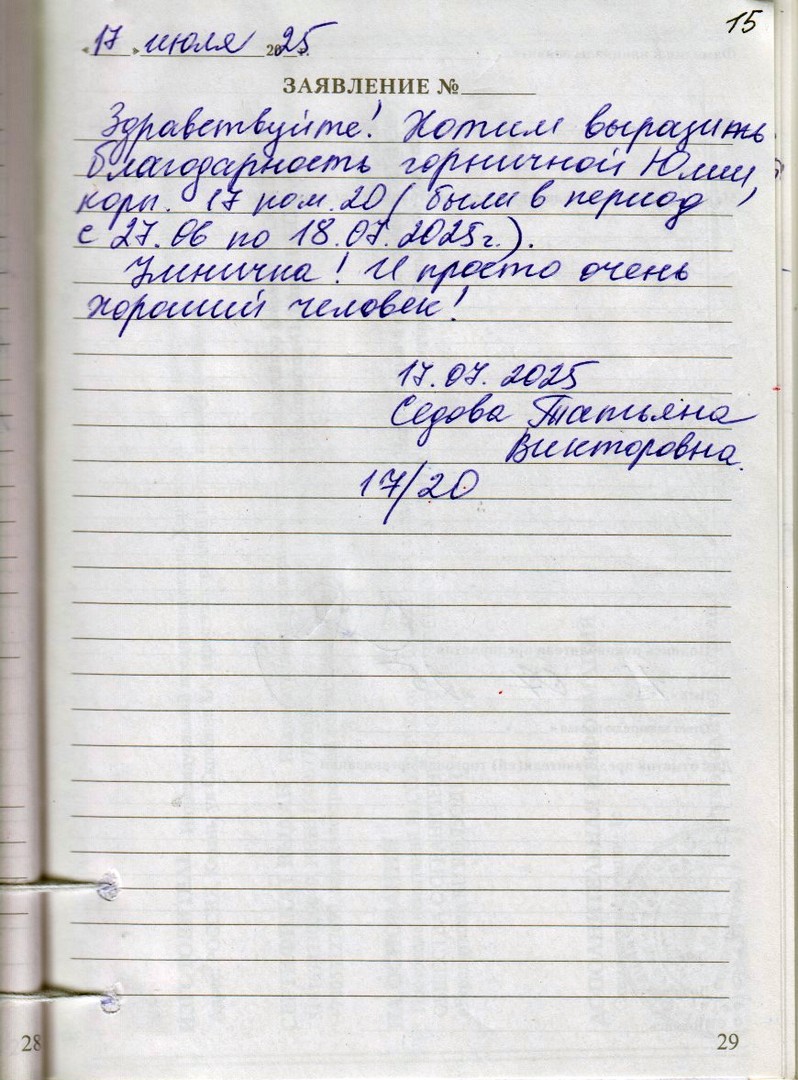 15
« 17 » июля 2025 г.
ЗАЯВЛЕНИЕ №
Здравствуйте! Хотим выразить
благодарность горничной Юлии,
корп. 17 ком. 20 ( были в период
с 27.06 по 18.07.2025г.).
Умничка! И просто очень
хороший человек!
17.07.2025
Седова Татьяна
Викторовна.
17/20
28
29